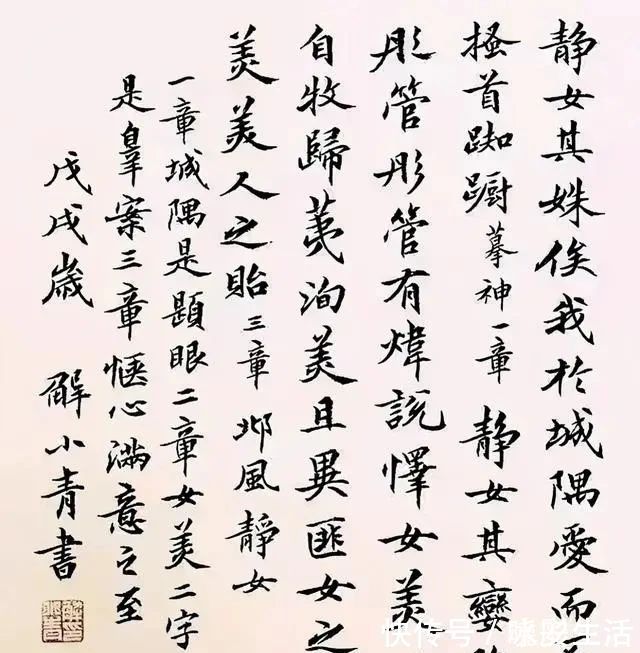 静女其姝俟我於城隅愛而
搔首踟蹰摹神一章静女其孌
彤管彤管有煒説懌女美
自牧歸荑洵美且異匪女之
美美人之貽三章邶風静女
一章城隅是題眼二章女美二字
是羣案三章惬心滿意之至
戊戌歲 解小青書
快传号/
生活